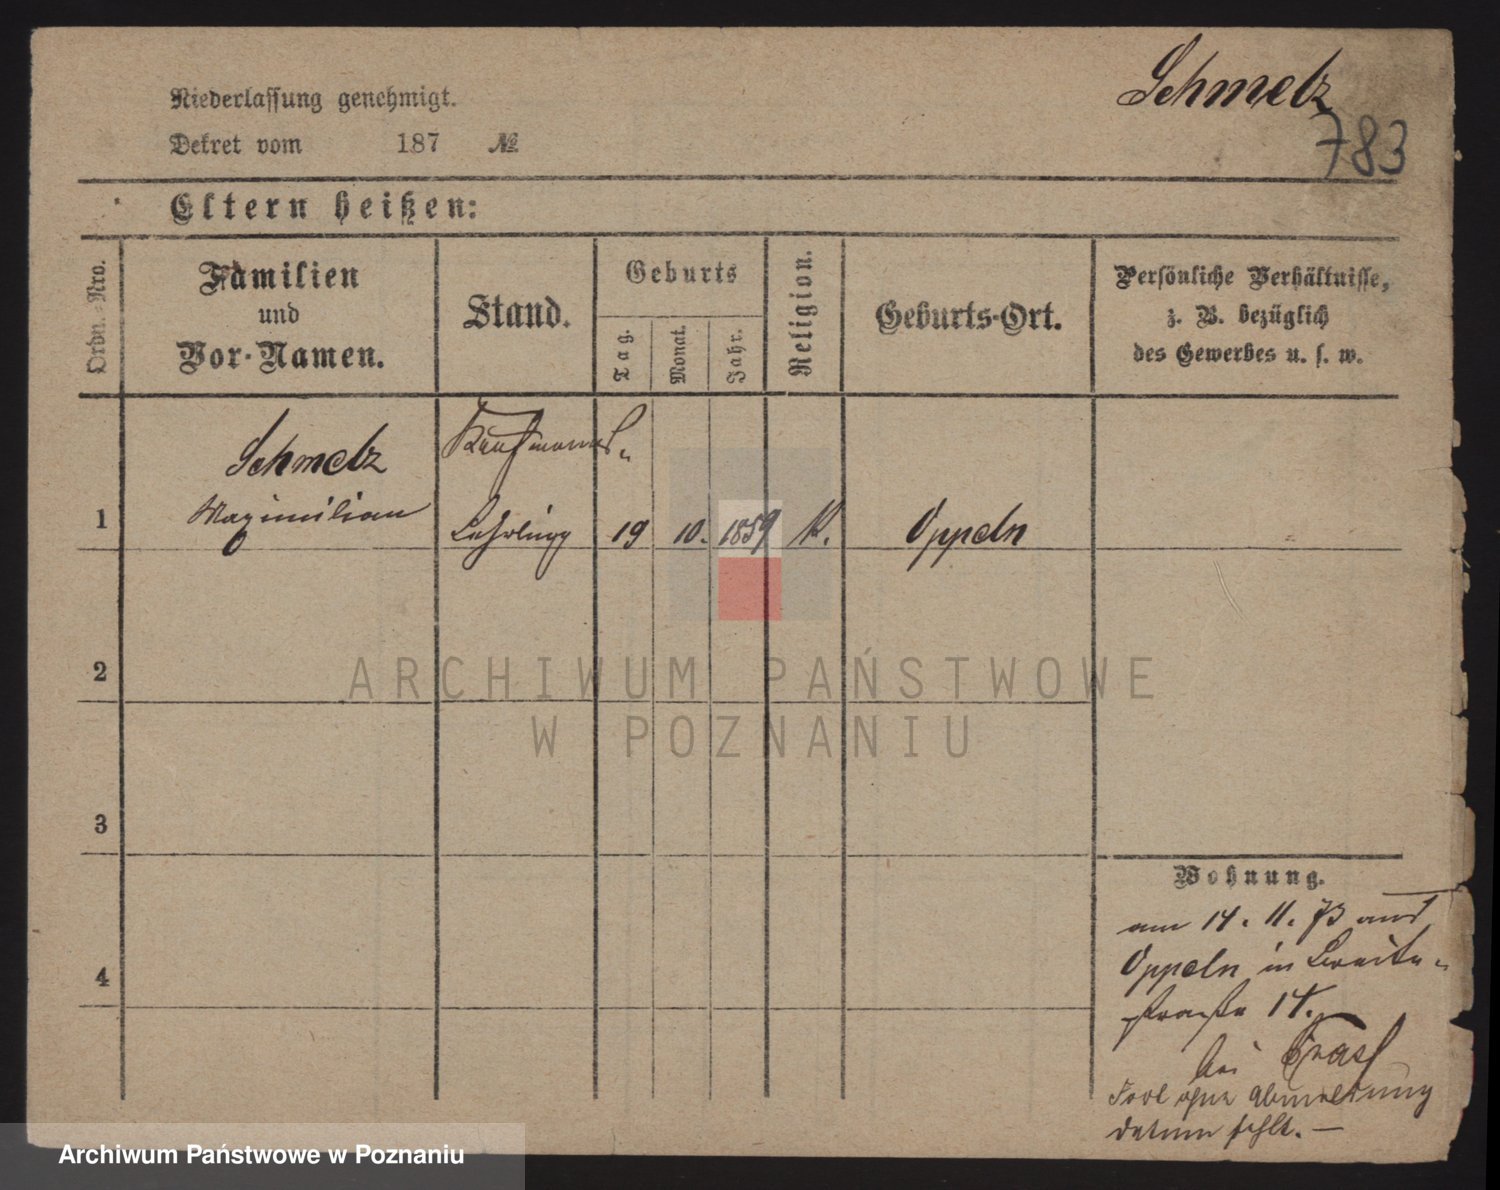 Schmelz
783
Niederlassung genehmigt.
Dekret vom 187 №
Eltern heißen:
Ordn.-Nro.
Familien
und
Vor-Namen.
Stand.
Geburts
Tag.
Monat.
Jahr.
Religion.
Geburts-Ort.
Persönliche Verhältnisse,
z. B. bezüglich
des Gewerbes u. s. w.
Schmelz
Kaufmanns-
1 Maximilian Lehrling 19 10. 1859 K. Oppeln
2
3
4
Wohnung.
am 14. 11. 73 aus
Oppeln in Breite-
straße 14.
bei
ohne Abmeldung
datum fehlt. —
ARCHIWUM PAŃSTWOWE
W POZNANIU
Archiwum Państwowe w Poznaniu